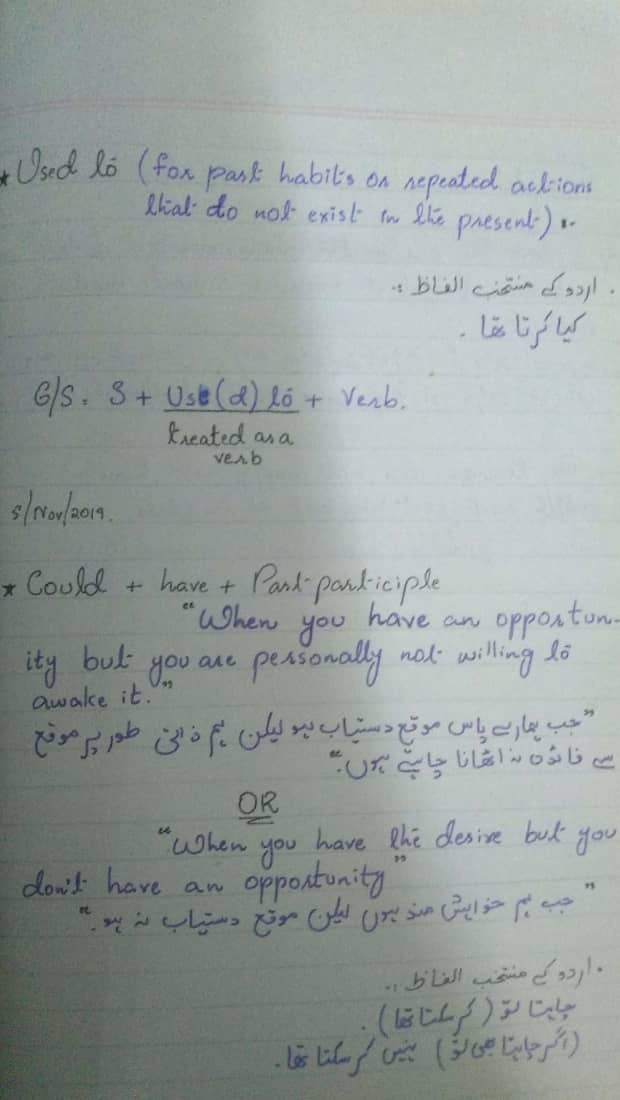 * Used to (for past habits or repeated actions
that do not exist in the present) :-
. اردو کے منتخب الفاظ :-
کیا کرتا تھا .
G/S: S + Use(d) to + Verb.
treated as a
verb
5/Nov/2019.
* Could + have + Past participle
"When you have an opportun-
ity but you are personally not willing to
awake it."
"جب ہمارے پاس موقع دستیاب ہو لیکن ہم ذاتی طور پر موقع
سے فائدہ نہ اٹھانا چاہتے ہوں."
OR
"When you have the desire but you
don't have an opportunity"
"جب ہم خواہش مند ہوں لیکن موقع دستیاب نہ ہو."
. اردو کے منتخب الفاظ :-
چاہتا تو (کر سکتا تھا) .
(اگر چاہتا بھی تو) نہیں کر سکتا تھا .